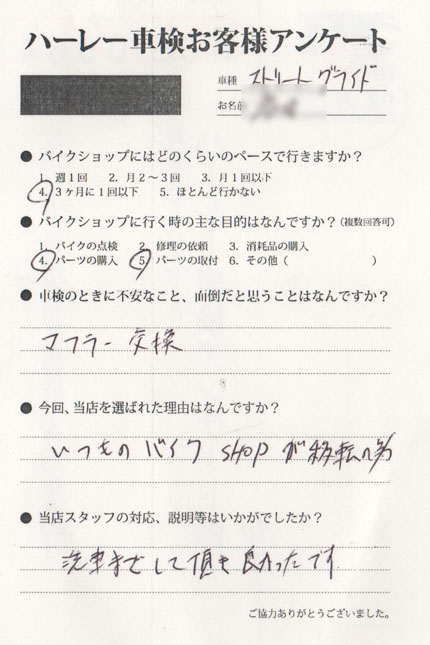 ハーレー車検お客様アンケート
車種 ストリートグライド
お名前
● バイクショップにはどのくらいのペースで行きますか?
1. 週1回 2. 月2〜3回 3. 月1回以下
4. 3ヶ月に1回以下 5. ほとんど行かない
● バイクショップに行く時の主な目的はなんですか?(複数回答可)
1. バイクの点検 2. 修理の依頼 3. 消耗品の購入
4. パーツの購入 5. パーツの取付 6. その他( )
● 車検のときに不安なこと、面倒だと思うことはなんですか?
マフラー交換
● 今回、当店を選ばれた理由はなんですか?
いつものバイク SHOP が移転の為
● 当店スタッフの対応、説明等はいかがでしたか?
洗車までして頂き良かったです
ご協力ありがとうございました。